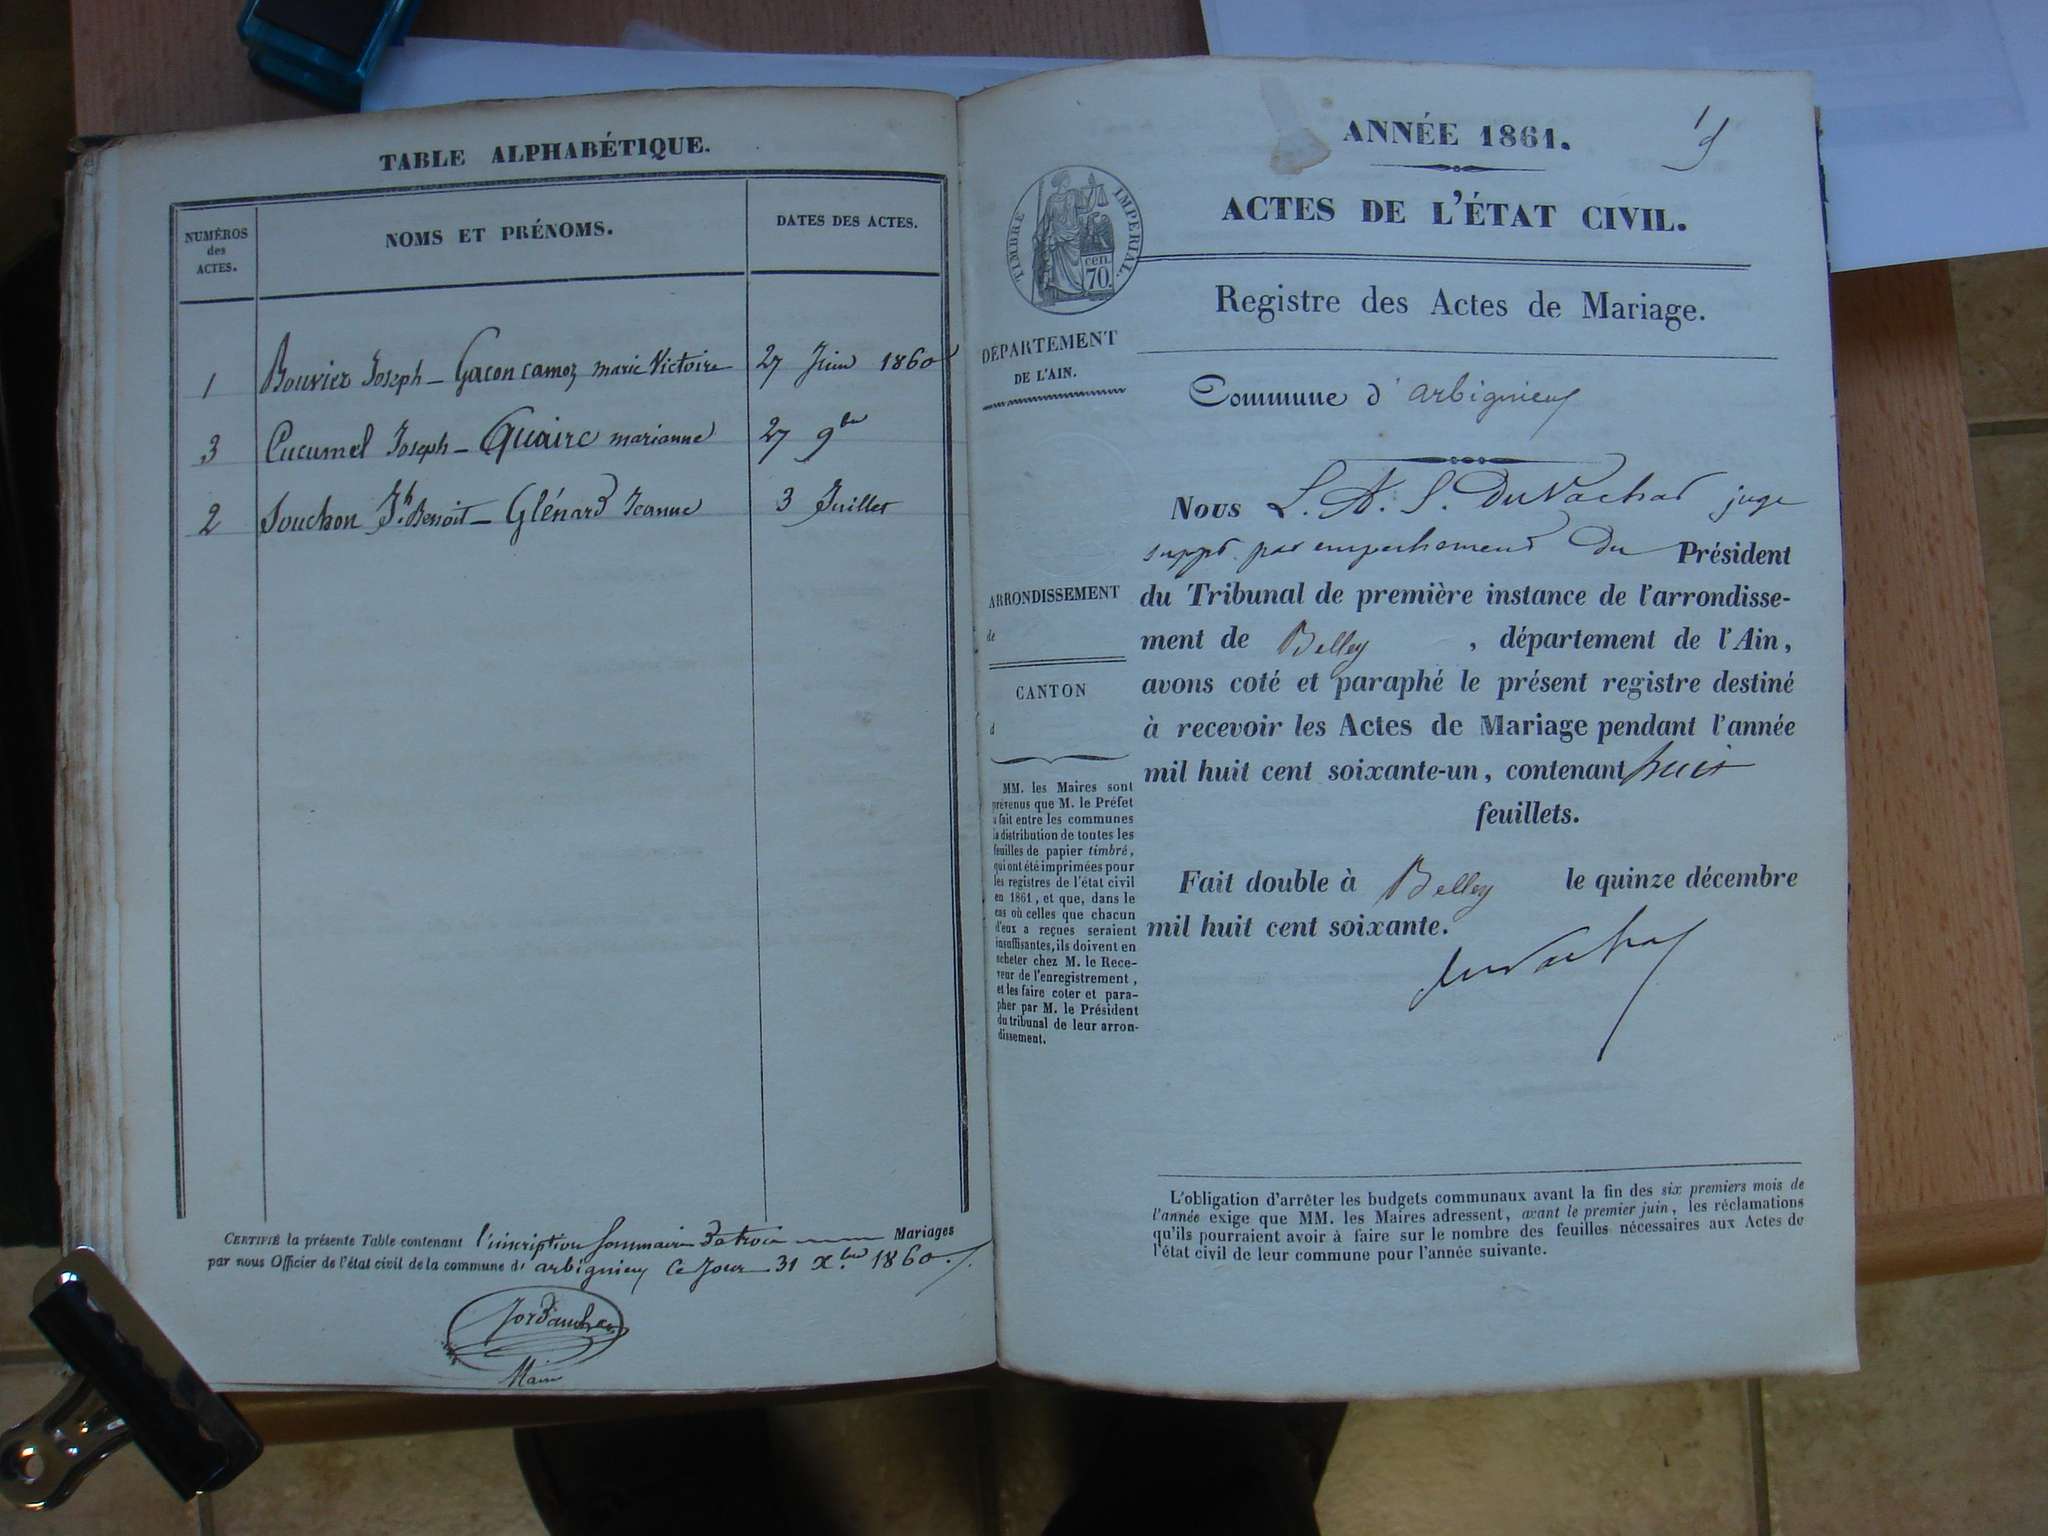 TABLE ALPHABÉTIQUE.
NUMÉROS
des
ACTES.
NOMS ET PRÉNOMS.
DATES DES ACTES.
1 Bouvier Joseph – Gacon camoz marie Victoire 27 Juin 1860
3 Cucumel Joseph – Quaire marianne 27 9bre
2 Souchon Jh Benoit – Glénard Jeanne 3 Juillet
CERTIFIÉ la présente Table contenant l'inscription Sommaire De trois Mariages
par nous Officier de l'état civil de la commune d'arbignieu Ce Jour 31 Xbre 1860.
Maire
ANNÉE 1861.
ACTES DE L'ÉTAT CIVIL.
TIMBRE IMPÉRIAL.
cen.
70.
Registre des Actes de Mariage.
DÉPARTEMENT
DE L'AIN.
Commune d'arbignieu
ARRONDISSEMENT
de
CANTON
d
MM. les Maires sont
prévenus que M. le Préfet
a fait entre les communes
la distribution de toutes les
feuilles de papier timbré,
qui ont été imprimées pour
les registres de l'état civil
en 1861, et que, dans le
cas où celles que chacun
d'eux a reçues seraient
insuffisantes, ils doivent en
acheter chez M. le Rece-
veur de l'enregistrement,
et les faire coter et para-
pher par M. le Président
du tribunal de leur arron-
dissement.
Nous L. A. S. DuVachat juge
suppt par empechement Du Président
du Tribunal de première instance de l'arrondisse-
ment de Belley, département de l'Ain,
avons coté et paraphé le présent registre destiné
à recevoir les Actes de Mariage pendant l'année
mil huit cent soixante-un, contenant huit
feuillets.
Fait double à Belley le quinze décembre
mil huit cent soixante.
duvachat
L'obligation d'arrêter les budgets communaux avant la fin des six premiers mois de
l'année exige que MM. les Maires adressent, avant le premier juin, les réclamations
qu'ils pourraient avoir à faire sur le nombre des feuilles nécessaires aux Actes de
l'état civil de leur commune pour l'année suivante.